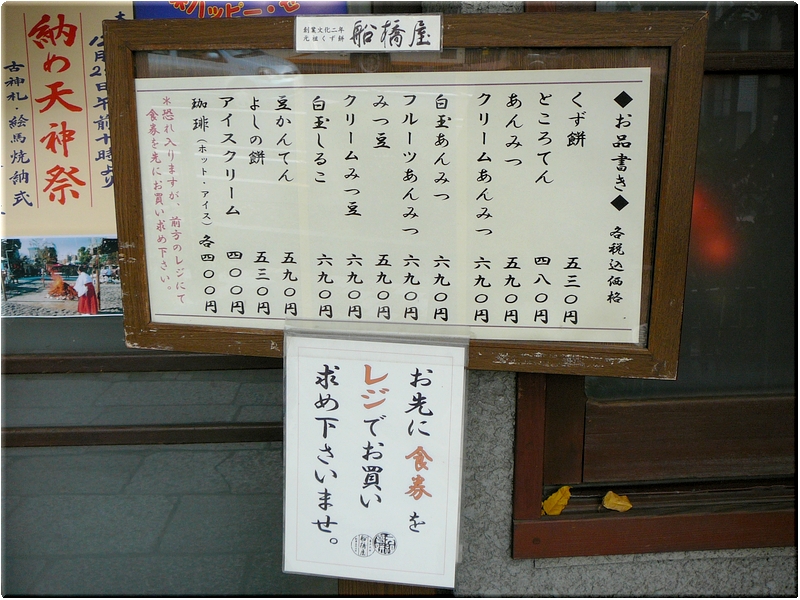 創業文化二年
元祖くず餅
船橋屋
◆お品書き◆ 各税込価格
くず餅 五三〇円
ところてん 四八〇円
あんみつ 五九〇円
クリームあんみつ 六九〇円
白玉あんみつ 六九〇円
フルーツあんみつ 六九〇円
みつ豆 五九〇円
クリームみつ豆 六九〇円
白玉しるこ 六九〇円
豆かんてん 五九〇円
よしの餅 五三〇円
アイスクリーム 四〇〇円
珈琲(ホット・アイス) 各四〇〇円
*恐れ入りますが、前方のレジにて
食券を先にお買い求め下さい。
お先に食券を
レジでお買い
求め下さいませ。
船橋屋
納め天神祭
古神札・絵馬焼納式